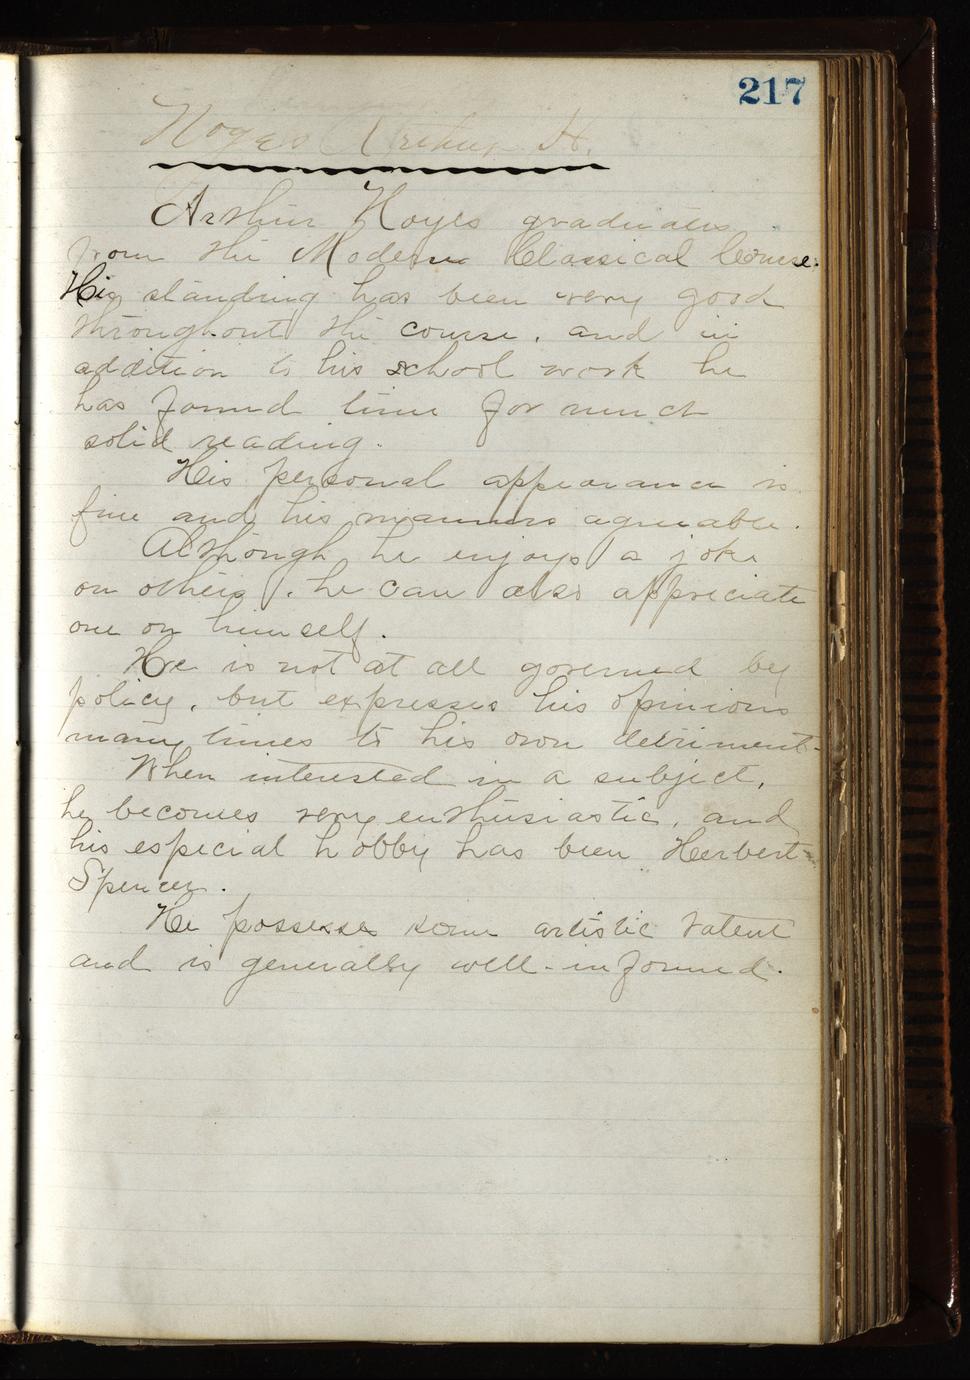 217
Noyes Arthur H.
Arthur Noyes graduates
from the Modern Classical Course.
His standing has been very good
throughout the course, and in
addition to his school work he
has found time for much
solid reading.
His personal appearance is
fine and his manners agreeable.
Although he enjoys a joke
on others, he can also appreciate
one on himself.
He is not at all governed by
policy, but expresses his opinions
many times to his own detriment.
When interested in a subject,
he becomes very enthusiastic, and
his especial hobby has been Herbert
Spencer.
He possesses some artistic talent
and is generally well-informed.